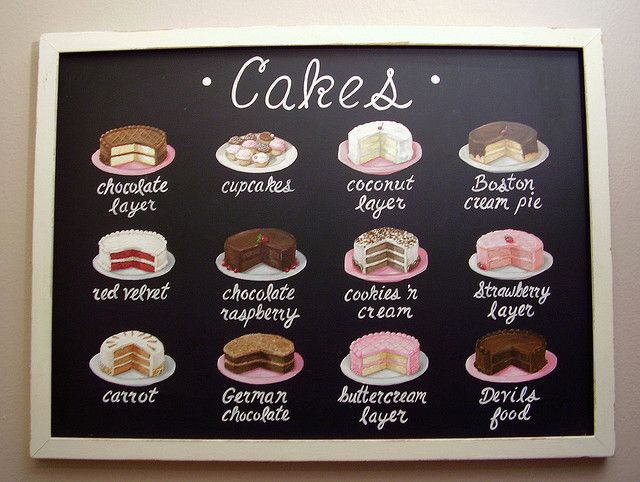 • Cakes •
chocolate layer
cupcakes
coconut layer
Boston cream pie
red velvet
chocolate raspberry
cookies 'n cream
Strawberry layer
carrot
German chocolate
buttercream layer
Devils food